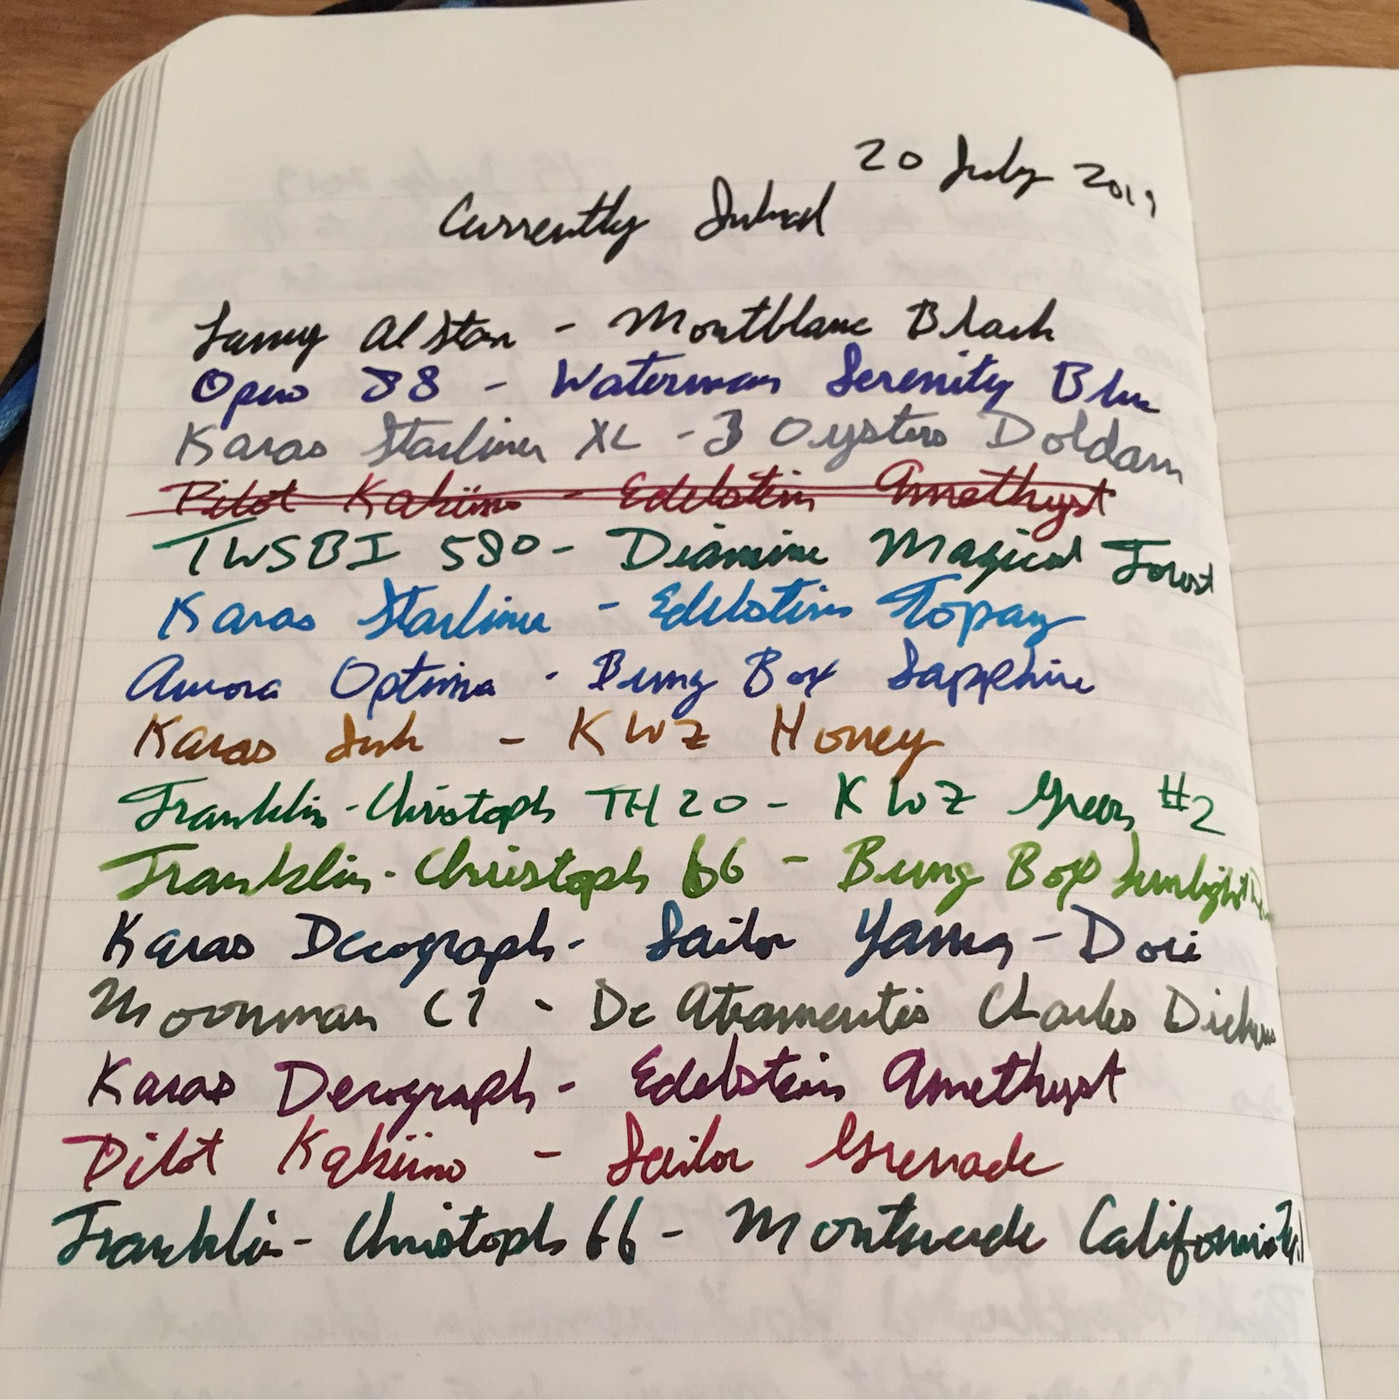 20 July 2019
Currently Inked
Lamy Al Star - Montblanc Black
Opus 88 - Waterman Serenity Blue
Karas Starliner XL - 3 Oysters Doldam
Pilot Kakiimo - Edelstein Amethyst
TWSBI 580 - Diamine Magical Forest
Karas Starliner - Edelstein Topaz
Aurora Optima - Bung Box Sapphire
Karas Ink - KWZ Honey
Franklin-Christoph TH20 - KWZ Green #2
Franklin-Christoph 66 - Bung Box Sunlight
Karas Decograph - Sailor Yama-Dori
Moonman C1 - De Atramentis Charles Dickens
Karas Decograph - Edelstein Amethyst
Pilot Kakiimo - Sailor Grenade
Franklin-Christoph 66 - Monteverde California Teal